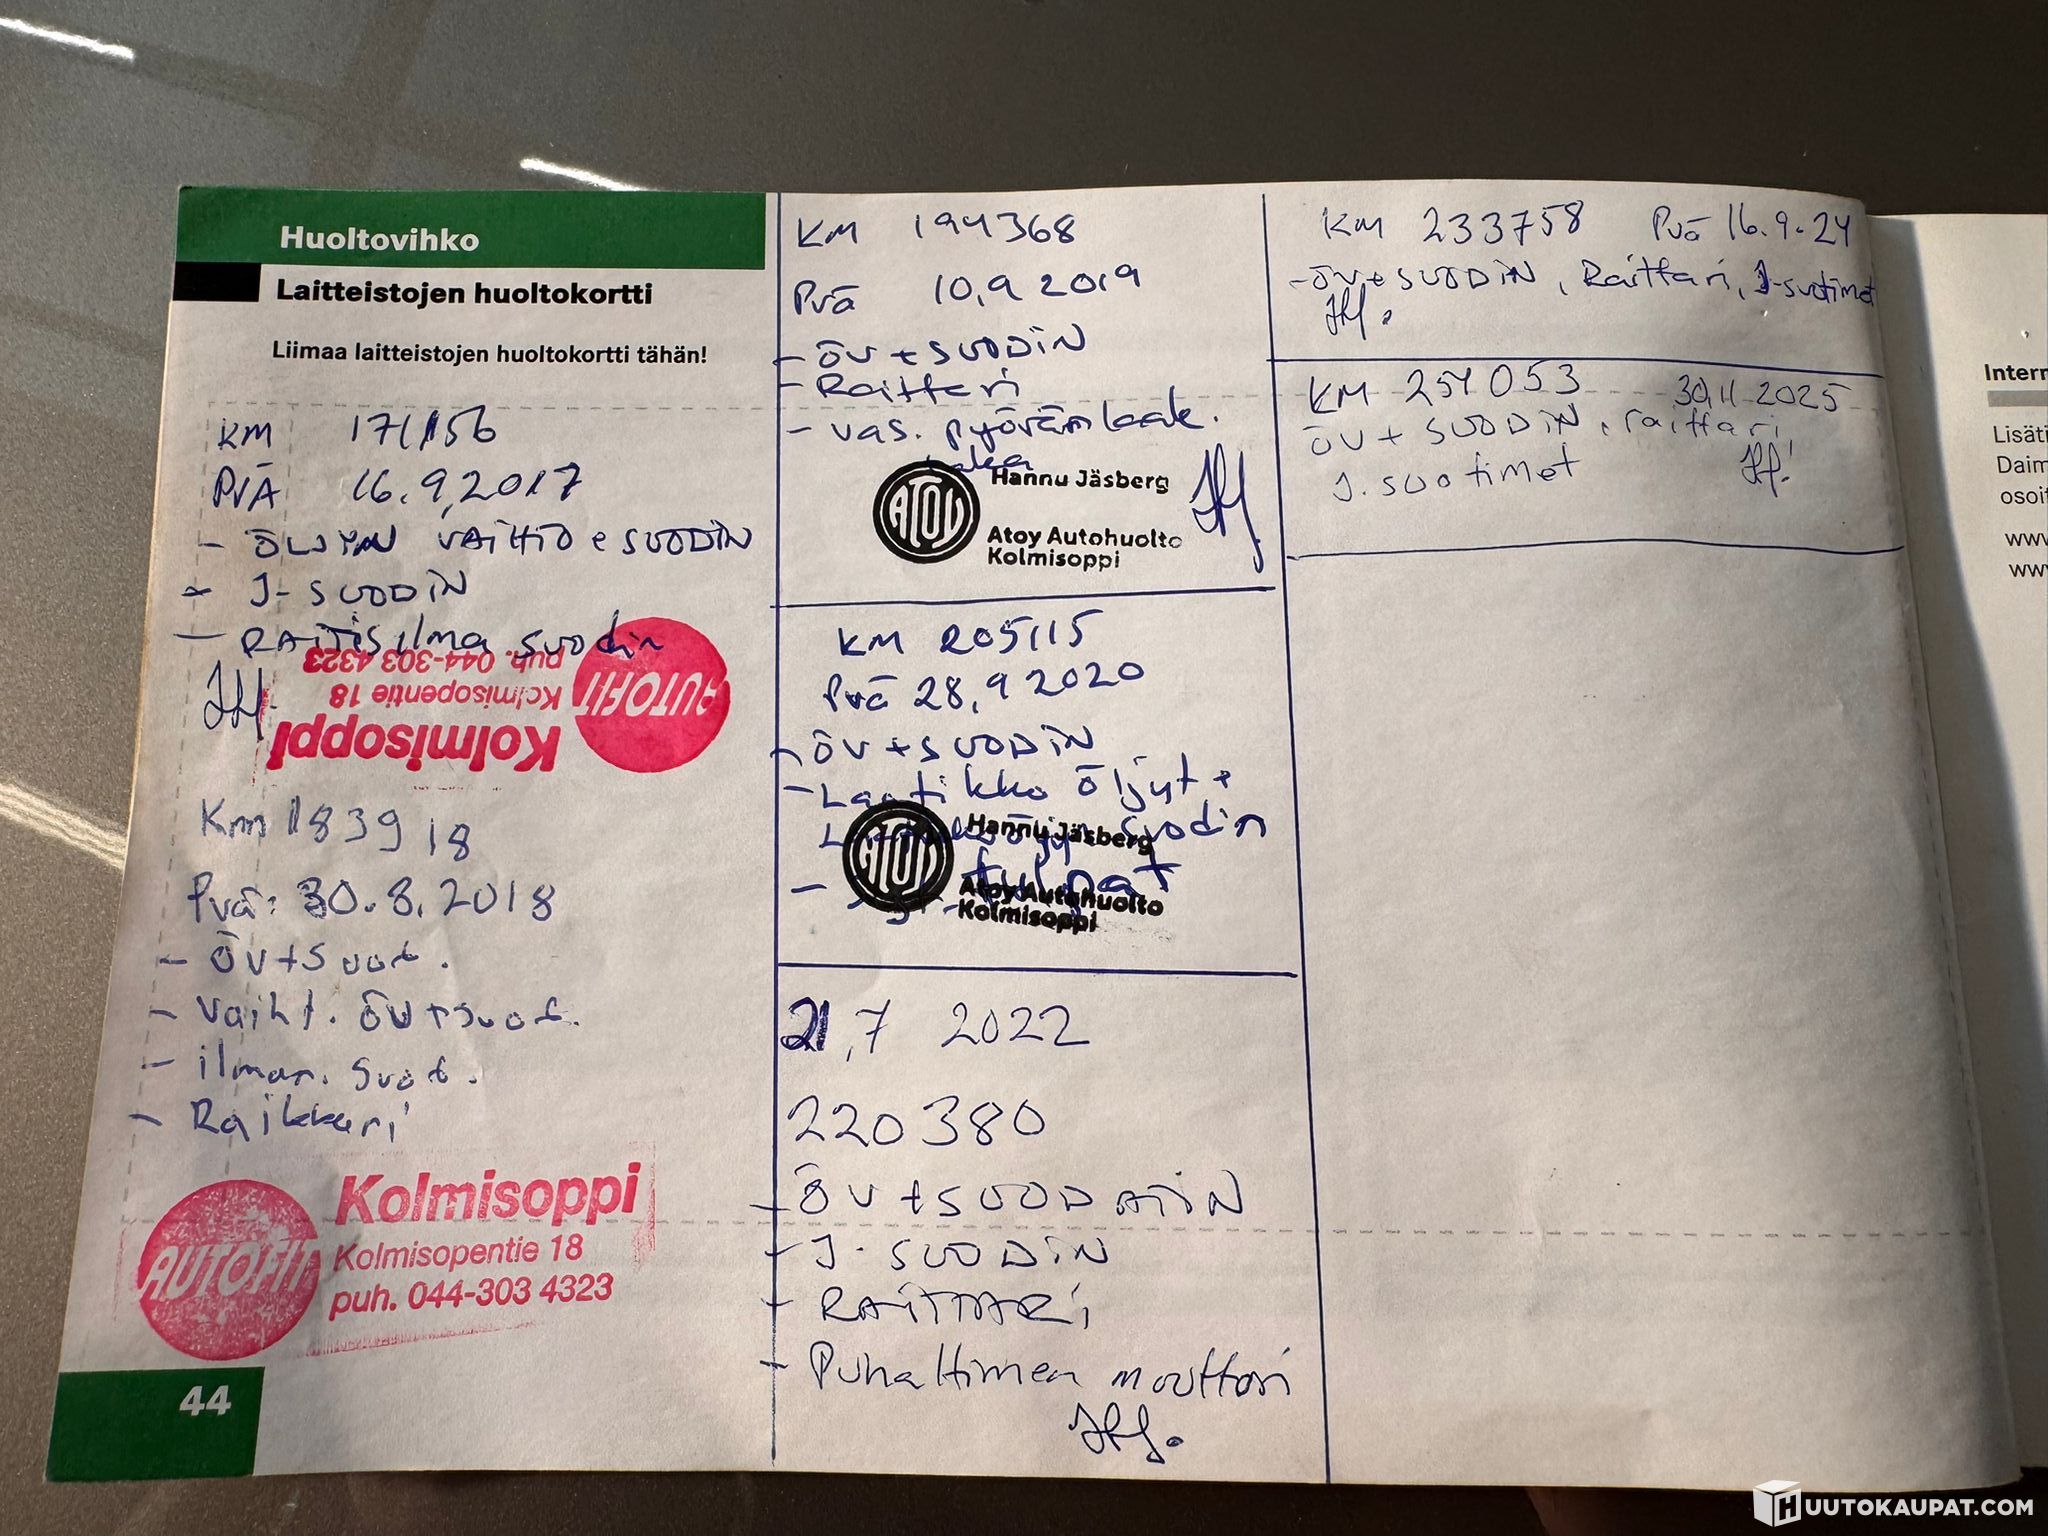 Huoltovihko
Laitteistojen huoltokortti
Liimaa laitteistojen huoltokortti tähän!
KM 171156
PVÄ 16.9.2017
- ÖLJYN VAIHTO + SUODIN
- J-SUODIN
- RAITISilma suodin
HJ.
puh. 044-303 4323
Kolmisopentie 18
Kolmisoppi
AUTOFIT
Km 183918
Pvä: 30.8.2018
- ÖV+Suot.
- Vaiht. ÖV+suot.
- ilman. Suot.
- Raikkari
AUTOFIT
Kolmisoppi
Kolmisopentie 18
puh. 044-303 4323
44
KM 194368
Pvä 10.9 2019
- ÖV+SUODIN
- Raittari
- vas. pyöränlaak.
ATOY
Hannu Jäsberg
Atoy Autohuolto
Kolmisoppi
HJ.
KM 205115
Pvä 28.9 2020
- ÖV+SUODIN
- Laatikko öljyt +
suodin
- tulpat
ATOY
Hannu Jäsberg
Atoy Autohuolto
Kolmisoppi
21.7 2022
220380
- ÖV+SUODATIN
- J. SUODIN
- RAITTARI
- Puhaltimen moottori
HJ.
KM 233758 Pvä 16.9.24
- ÖV+SUODIN, Raittari, J-suotimet
HJ.
KM 254053 30.11 2025
ÖV+SUODIN, raittari
J. suotimet HJ.
Intern
Lisäti
Daim
osoit
www
www
HUUTOKAUPAT.COM